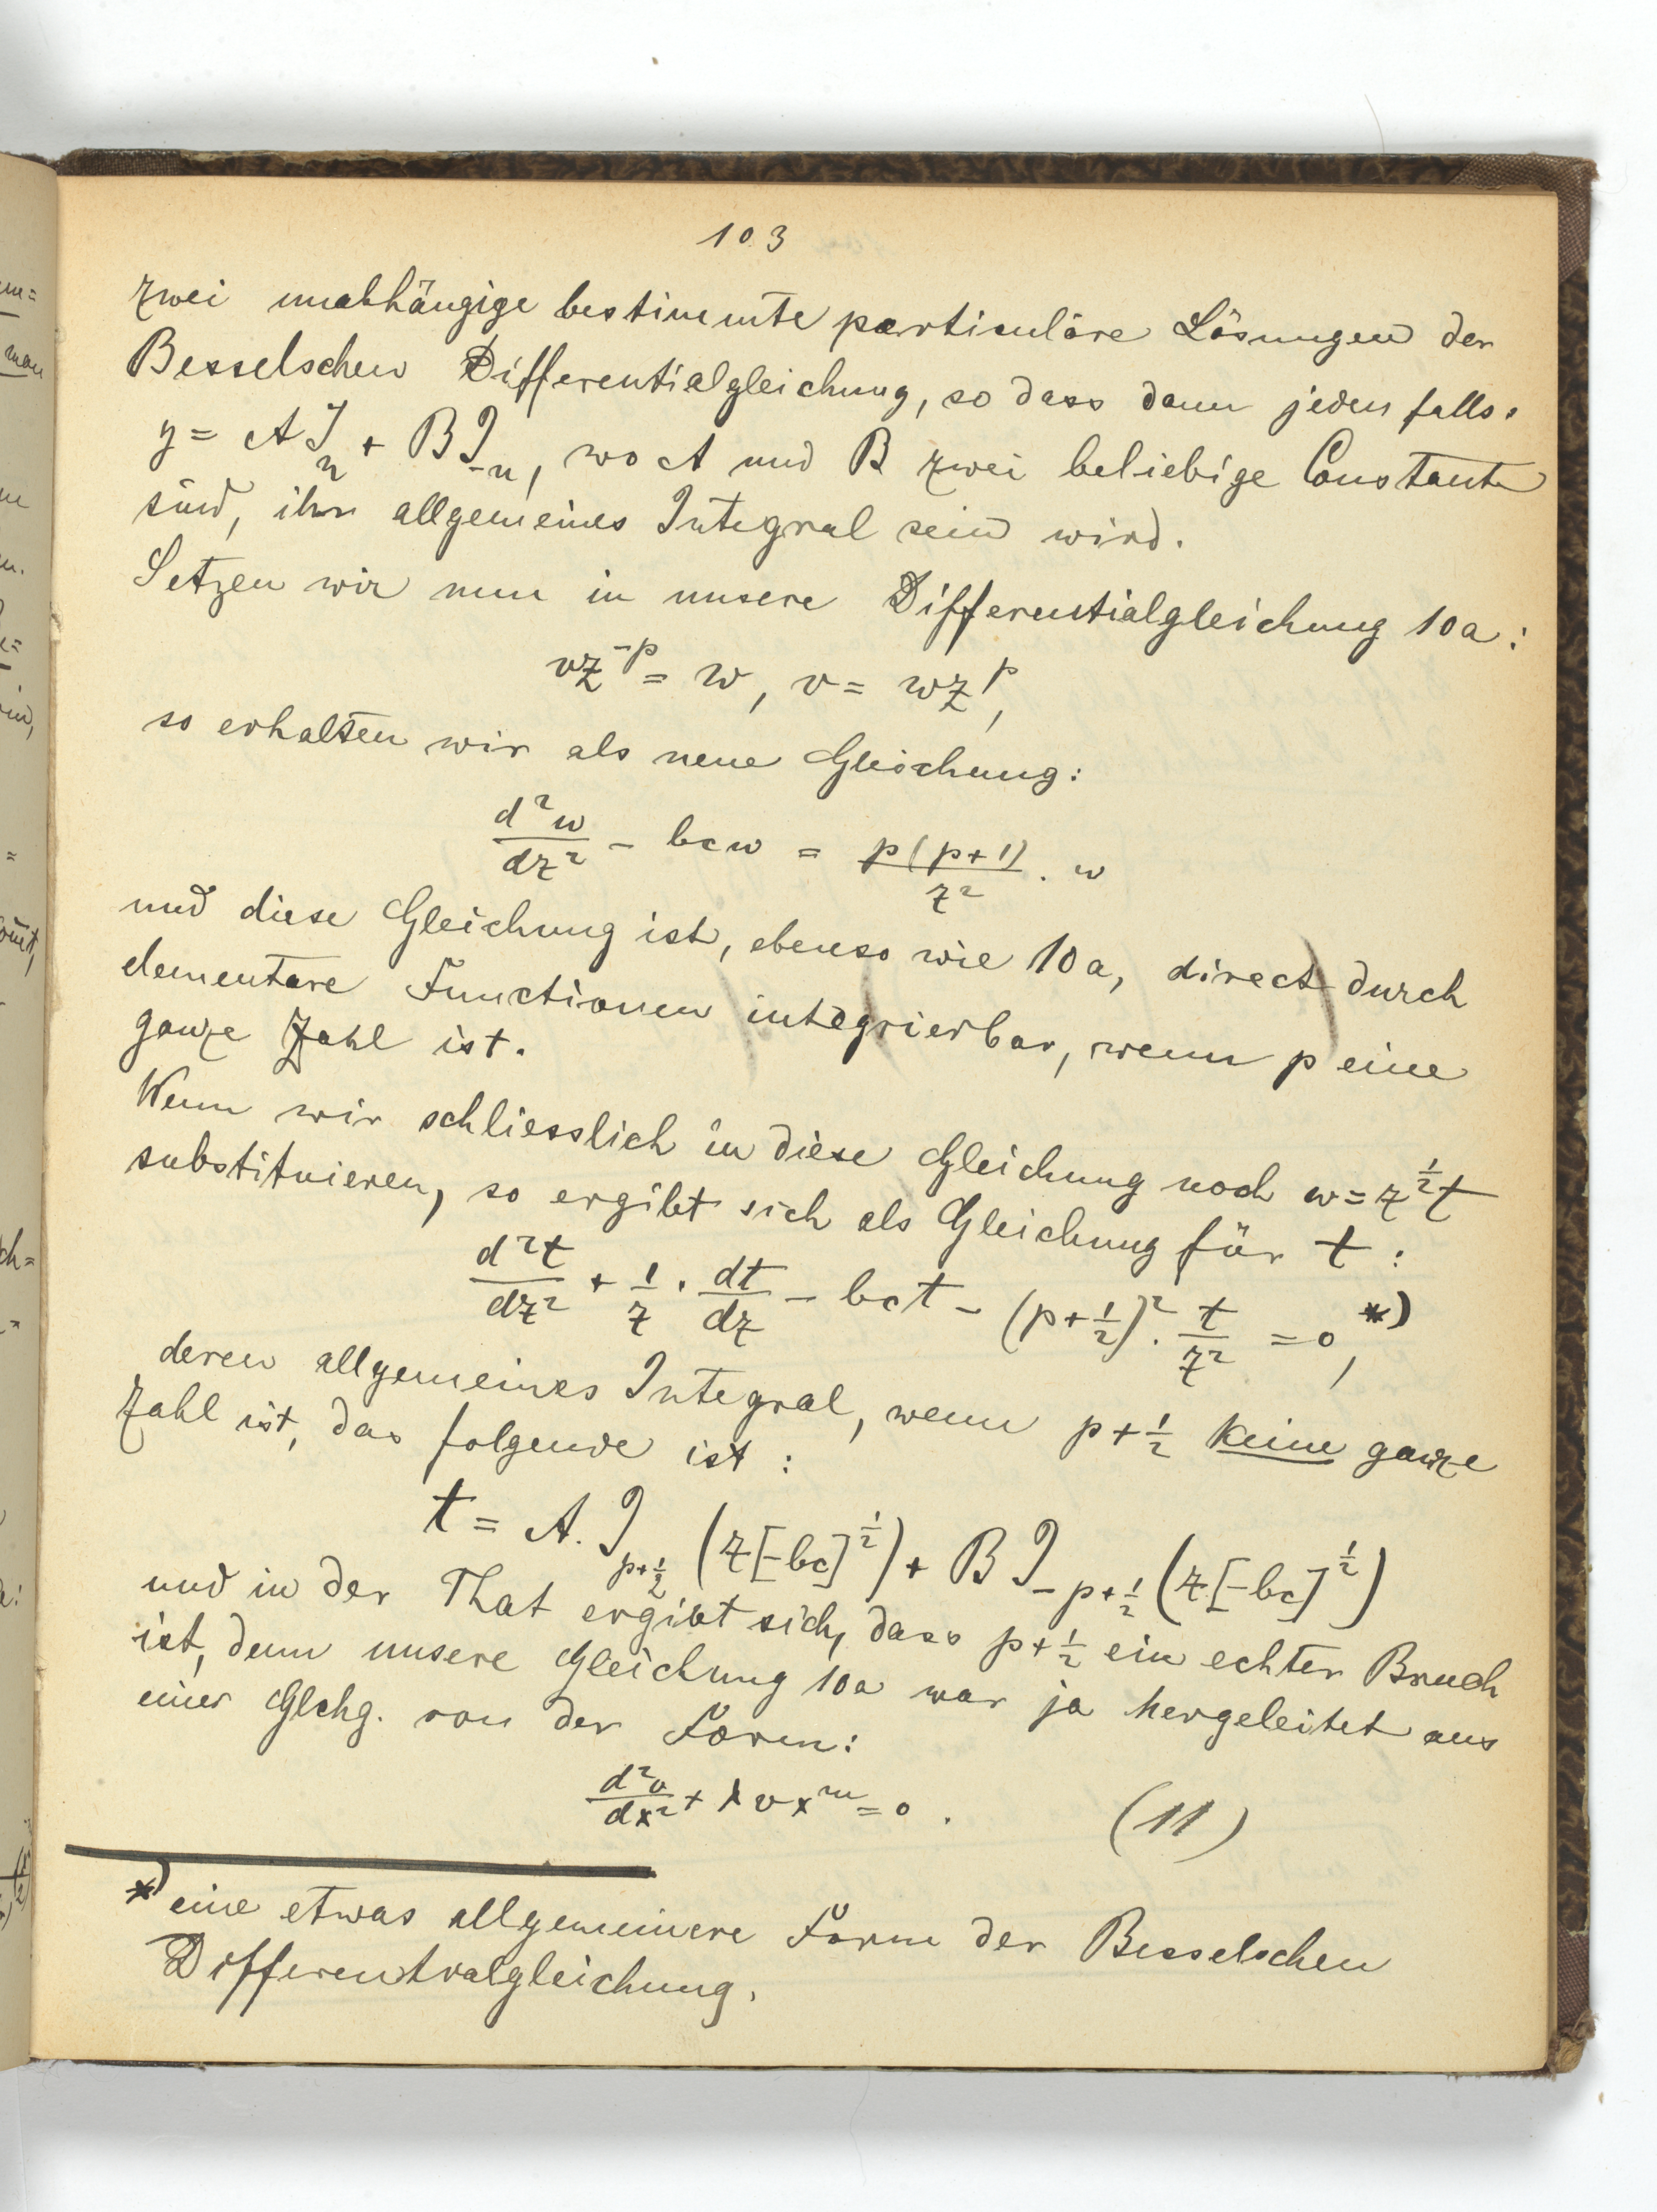 103
zwei unabhängige bestimmte particuläre Lösungen der
Besselschen Differentialgleichung, so dass dann jedenfalls
y = A J_n + B J_{-n}, wo A und B zwei beliebige Constante
sind, ihr allgemeines Integral sein wird.
Setzen wir nun in unsere Differentialgleichung 10a:
vz^{-p} = w, v = wz^p,
so erhalten wir als neue Gleichung:
d²w/dz² - bcw = p(p+1)/z² · w
und diese Gleichung ist, ebenso wie 10a, direct durch
elementare Functionen integrierbar, wenn p eine
ganze Zahl ist.
Wenn wir schliesslich in diese Gleichung noch w = z^{1/2}t
substituieren, so ergibt sich als Gleichung für t:
d²t/dz² + 1/z · dt/dz - bct - (p+1/2)² · t/z² = 0, *)
deren allgemeines Integral, wenn p+1/2 keine ganze
Zahl ist, das folgende ist:
t = A. J_{p+1/2} (z[-bc]^{1/2}) + B J_{-p+1/2} (z[-bc]^{1/2})
und in der That ergibt sich, dass p+1/2 ein echter Bruch
ist, denn unsere Gleichung 10a war ja hergeleitet aus
einer Glchg. von der Form:
d²v/dx² + λvx^m = 0. (11)
*) eine etwas allgemeinere Form der Besselschen
Differentialgleichung.